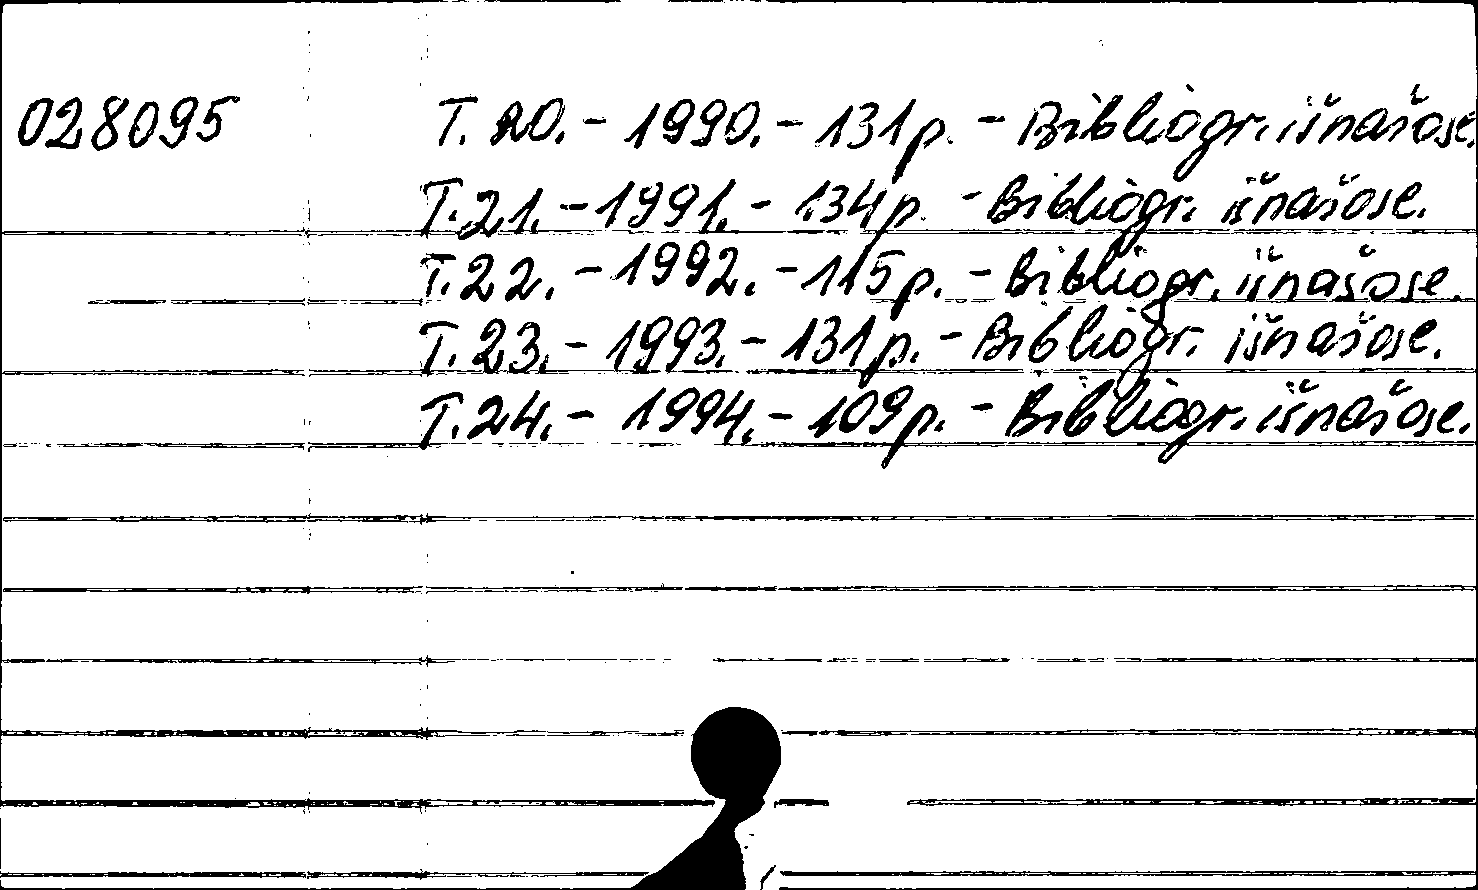 028095 T. 20. - 1990. - 131 p. - Bibliogr. išnašose.
T. 21. - 1991. - 134 p. - Bibliogr. išnašose.
T. 22. - 1992. - 115 p. - Bibliogr. išnašose.
T. 23. - 1993. - 131 p. - Bibliogr. išnašose.
T. 24. - 1994. - 109 p. - Bibliogr. išnašose.